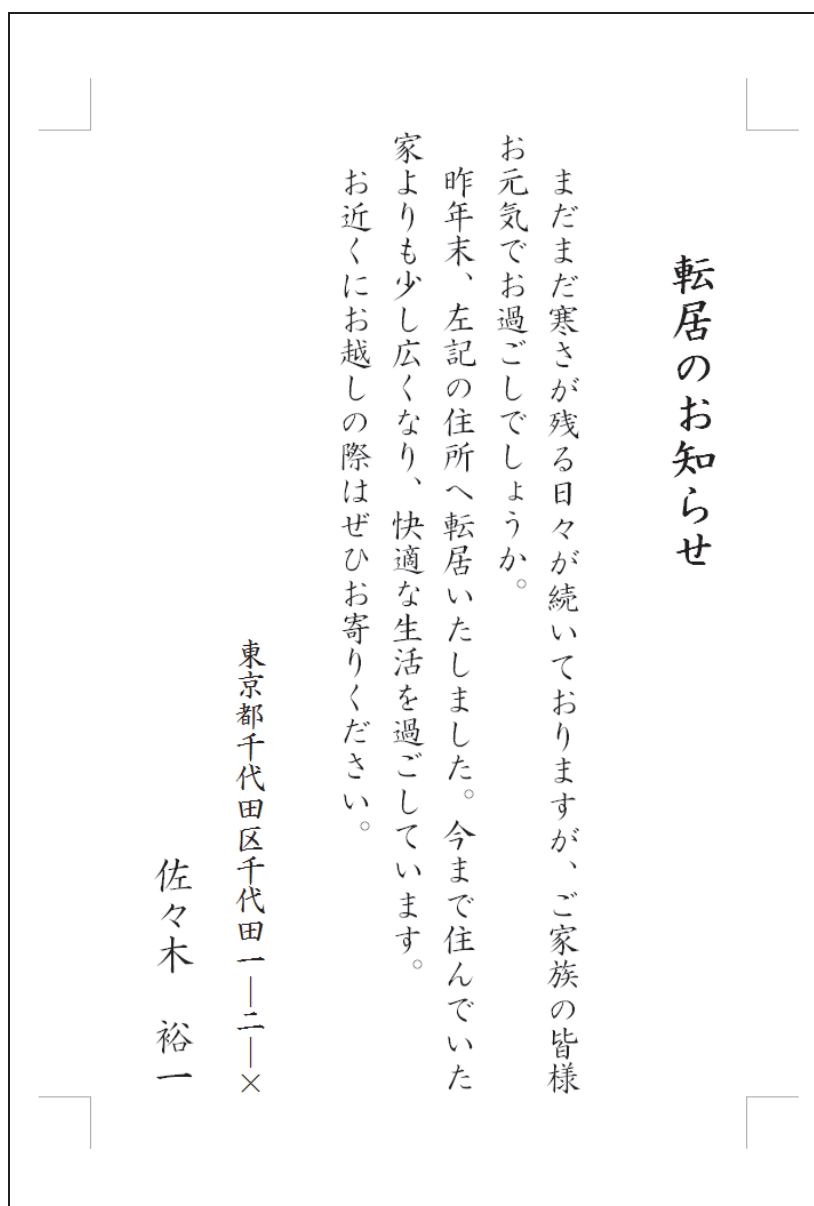 転居のお知らせ
まだまだ寒さが残る日々が続いておりますが、ご家族の皆様
お元気でお過ごしでしょうか。
昨年末、左記の住所へ転居いたしました。今まで住んでいた
家よりも少し広くなり、快適な生活を過ごしています。
お近くにお越しの際はぜひお寄りください。
東京都千代田区千代田一―二―×
佐々木　裕一